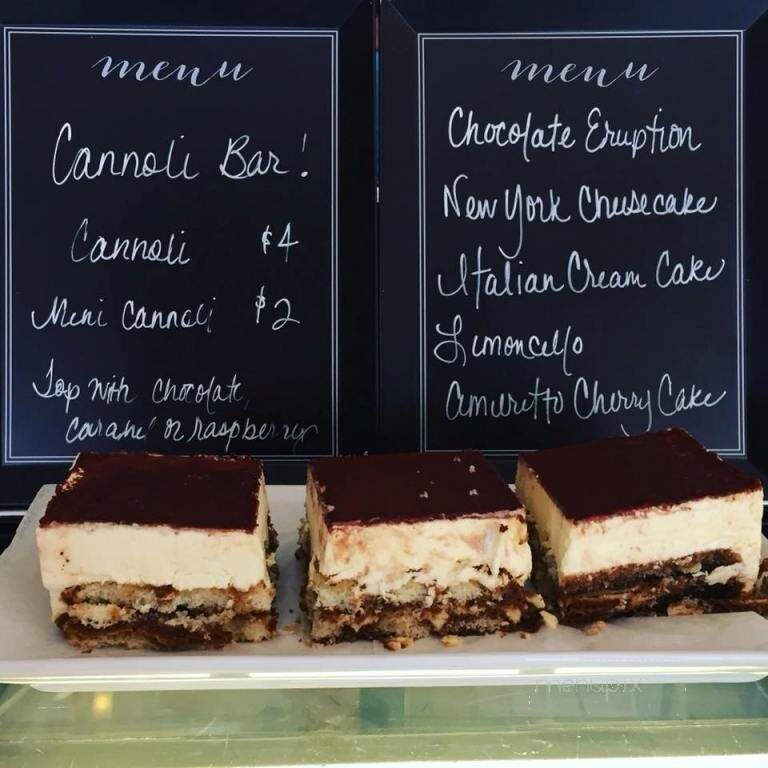 menu
Cannoli Bar!
Cannoli $4
Mini Cannoli $2
Top with chocolate,
caramel or raspberry
menu
Chocolate Eruption
New York Cheesecake
Italian Cream Cake
Limoncello
Amaretto Cherry Cake
menupix